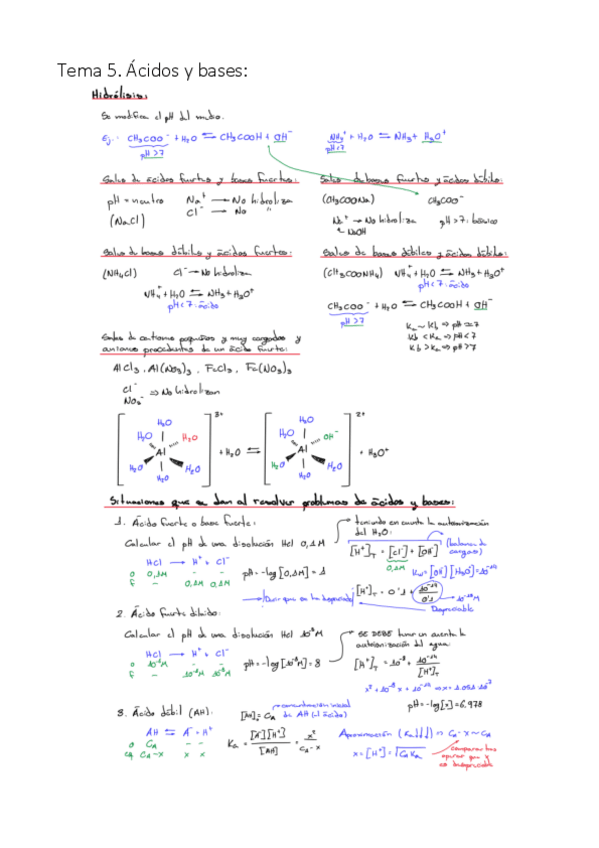 Tema 5. Ácidos y bases:
Hidrólisis:
Se modifica el pH del medio.
Ej.: CH₃COO⁻ + H₂O ⇌ CH₃COOH + OH⁻
pH>7
NH₄⁺ + H₂O ⇌ NH₃ + H₃O⁺
pH<7
Sales de ácidos fuertes y bases fuertes:
pH = neutro Na⁺ → No hidroliza
(NaCl) Cl⁻ → No "
Sales de bases fuertes y ácidos débiles:
(CH₃COONa) CH₃COO⁻
Na⁺ → No hidroliza pH > 7: básico
NaOH
Sales de bases débiles y ácidos fuertes:
(NH₄Cl) Cl⁻ → No hidroliza
NH₄⁺ + H₂O ⇌ NH₃ + H₃O⁺
pH < 7: ácido
Sales de bases débiles y ácidos débiles:
(CH₃COONH₄) NH₄⁺ + H₂O ⇌ NH₃ + H₃O⁺
pH < 7: ácido
CH₃COO⁻ + H₂O ⇌ CH₃COOH + OH⁻
pH>7
Ka ~ Kb ⇒ pH ≃ 7
Kb < Ka ⇒ pH < 7
Kb > Ka ⇒ pH > 7
Sales de cationes pequeños y muy cargados y
aniones procedentes de un ácido fuerte:
AlCl₃, Al(NO₃)₃, FeCl₃, Fe(NO₃)₃
Cl⁻
NO₃⁻ ⇒ No hidrolizan
H₂O H₂O H₂O Al H₂O H₂O H₂O 3+
+ H₂O ⇌
H₂O H₂O OH⁻ Al H₂O H₂O H₂O 2+
+ H₃O⁺
Situaciones que se dan al resolver problemas de ácidos y bases:
1. Ácido fuerte o base fuerte:
Calcular el pH de una disolución HCl 0,1M
HCl → H⁺ + Cl⁻
0 0,1M - -
f - 0,1M 0,1M
pH = -log[0,1M] = 1
teniendo en cuenta la autoionización
del H₂O:
[H⁺]T = [Cl⁻] + [OH⁻] (balance de cargas)
0,1M
Kw = [OH⁻][H₃O⁺] = 10⁻¹⁴
[H⁺]T = 0'1 + 10⁻¹⁴/0'1 → 10⁻¹³M
Despreciable
Decir que se ha despreciado
2. Ácido fuerte diluido:
Calcular el pH de una disolución HCl 10⁻⁸M
HCl → H⁺ + Cl⁻
0 10⁻⁸M - -
f - 10⁻⁸M 10⁻⁸M
pH = -log[10⁻⁸M] = 8
SE DEBE tener en cuenta la
autoionización del agua:
[H⁺]T = 10⁻⁸ + 10⁻¹⁴/[H⁺]T
x² + 10⁻⁸x + 10⁻¹⁴ ⇒ x = 1.051 10⁻⁷
pH = -log[x] = 6,978
3. Ácido débil (AH): [AH]₀ = CA → concentración inicial
de AH (el ácido)
AH ⇌ A⁻ + H⁺
0 CA - -
eq CA-x x x
Ka = [A⁻][H⁺]/[AH] = x²/CA-x
Aproximación (Ka↓↓↓) ⇒ CA - x ~ CA
x = [H⁺] = √CA Ka
comprobar tras
operar que x
es despreciable